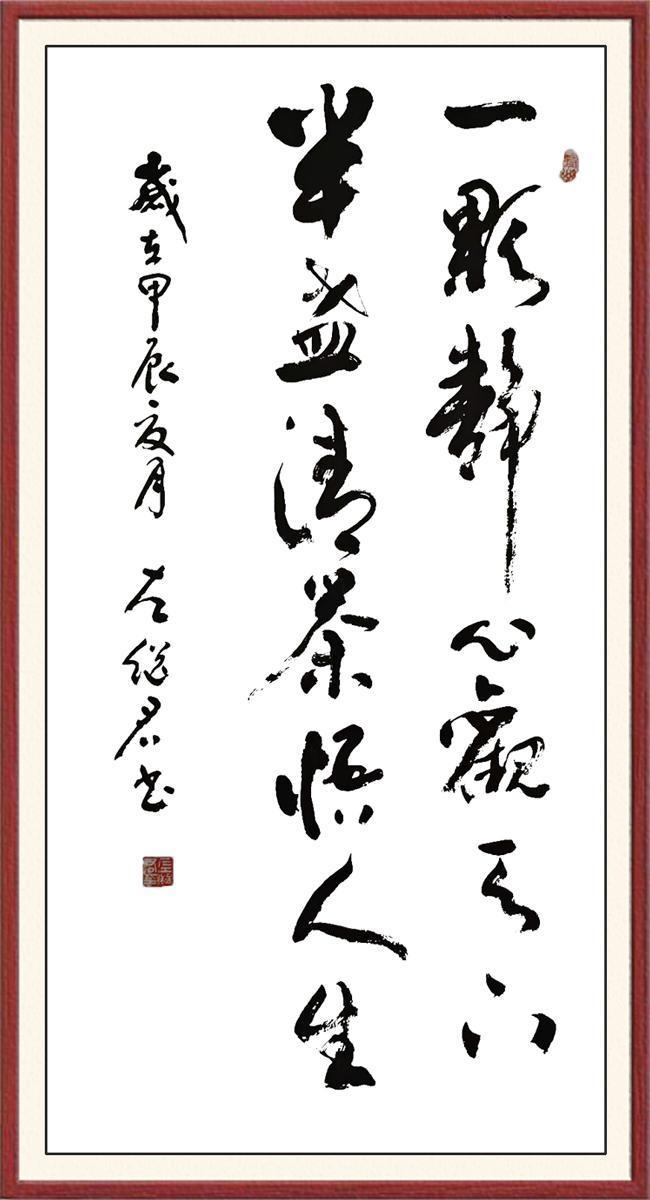 一颗静心观天下
半盏清茶悟人生
岁在甲辰夏月 左继君书